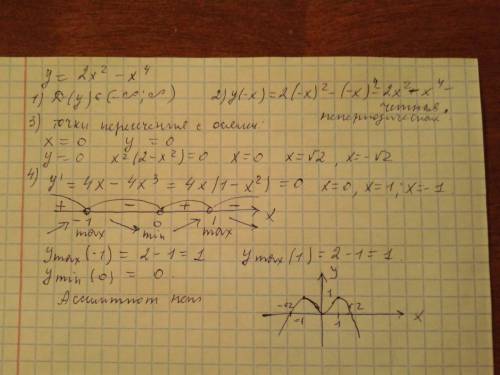 y = 2x² - x⁴
1) D(y) ∈ (-∞; ∞) 2) y(-x) = 2(-x)² - (-x)⁴ = 2x² - x⁴ -
четная,
непериодическая.
3) точки пересечения с осями:
x = 0 y = 0
y = 0 x²(2-x²) = 0 x = 0 x = √2, x = -√2
4) y' = 4x - 4x³ = 4x(1-x²) = 0 x = 0, x = 1, x = -1
+ - + -
-1 0 1 x
max min max
ymax(-1) = 2-1 = 1 ymax(1) = 2-1 = 1.
ymin(0) = 0.
Ассимптот нет
y
1
-√2 -1 1 √2 x